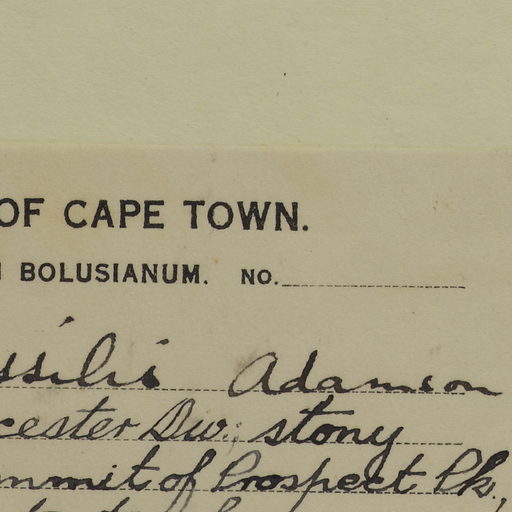 OF CAPE TOWN.
BOLUSIANUM. NO.
ssilis Adamson
cester Div.; stony
mmit of Prospect Pk.,